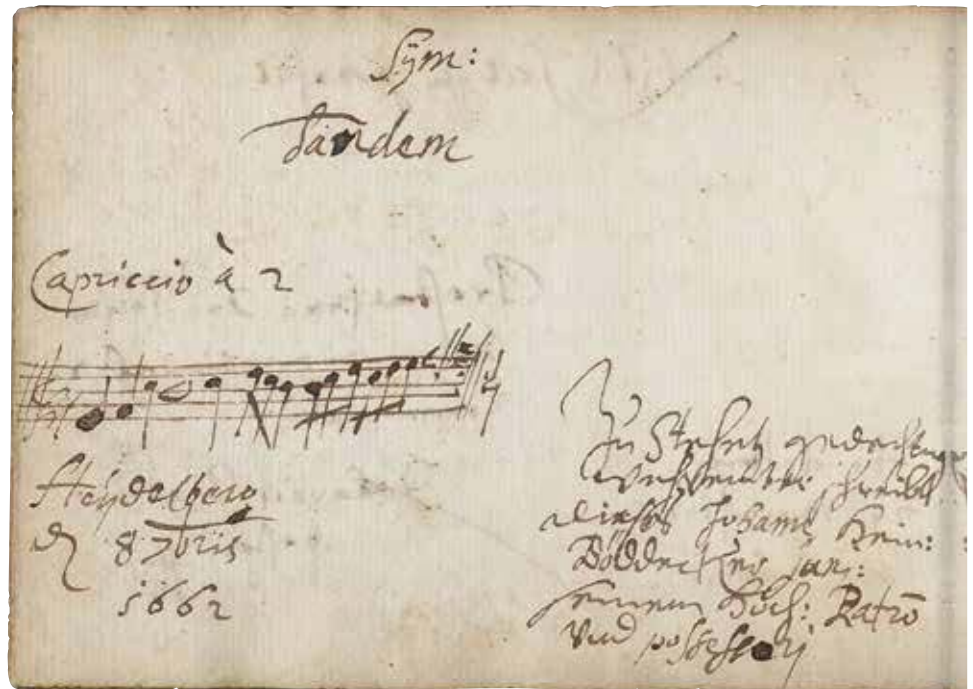 Sÿm:
Tandem
Capriccio à 2
Heÿdelberg
d 8 7bris
1662
Zu Stehets gedechtnus
schreibt
dieses Johann Hein:
Böddecker jun:
seinem Hoch: Patrō
vnd possessori